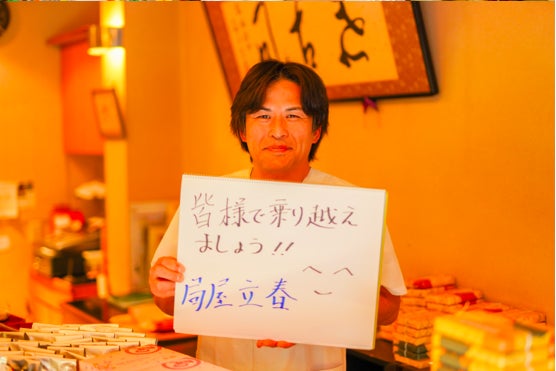 皆様で乗り越え
ましょう!!
局屋立春